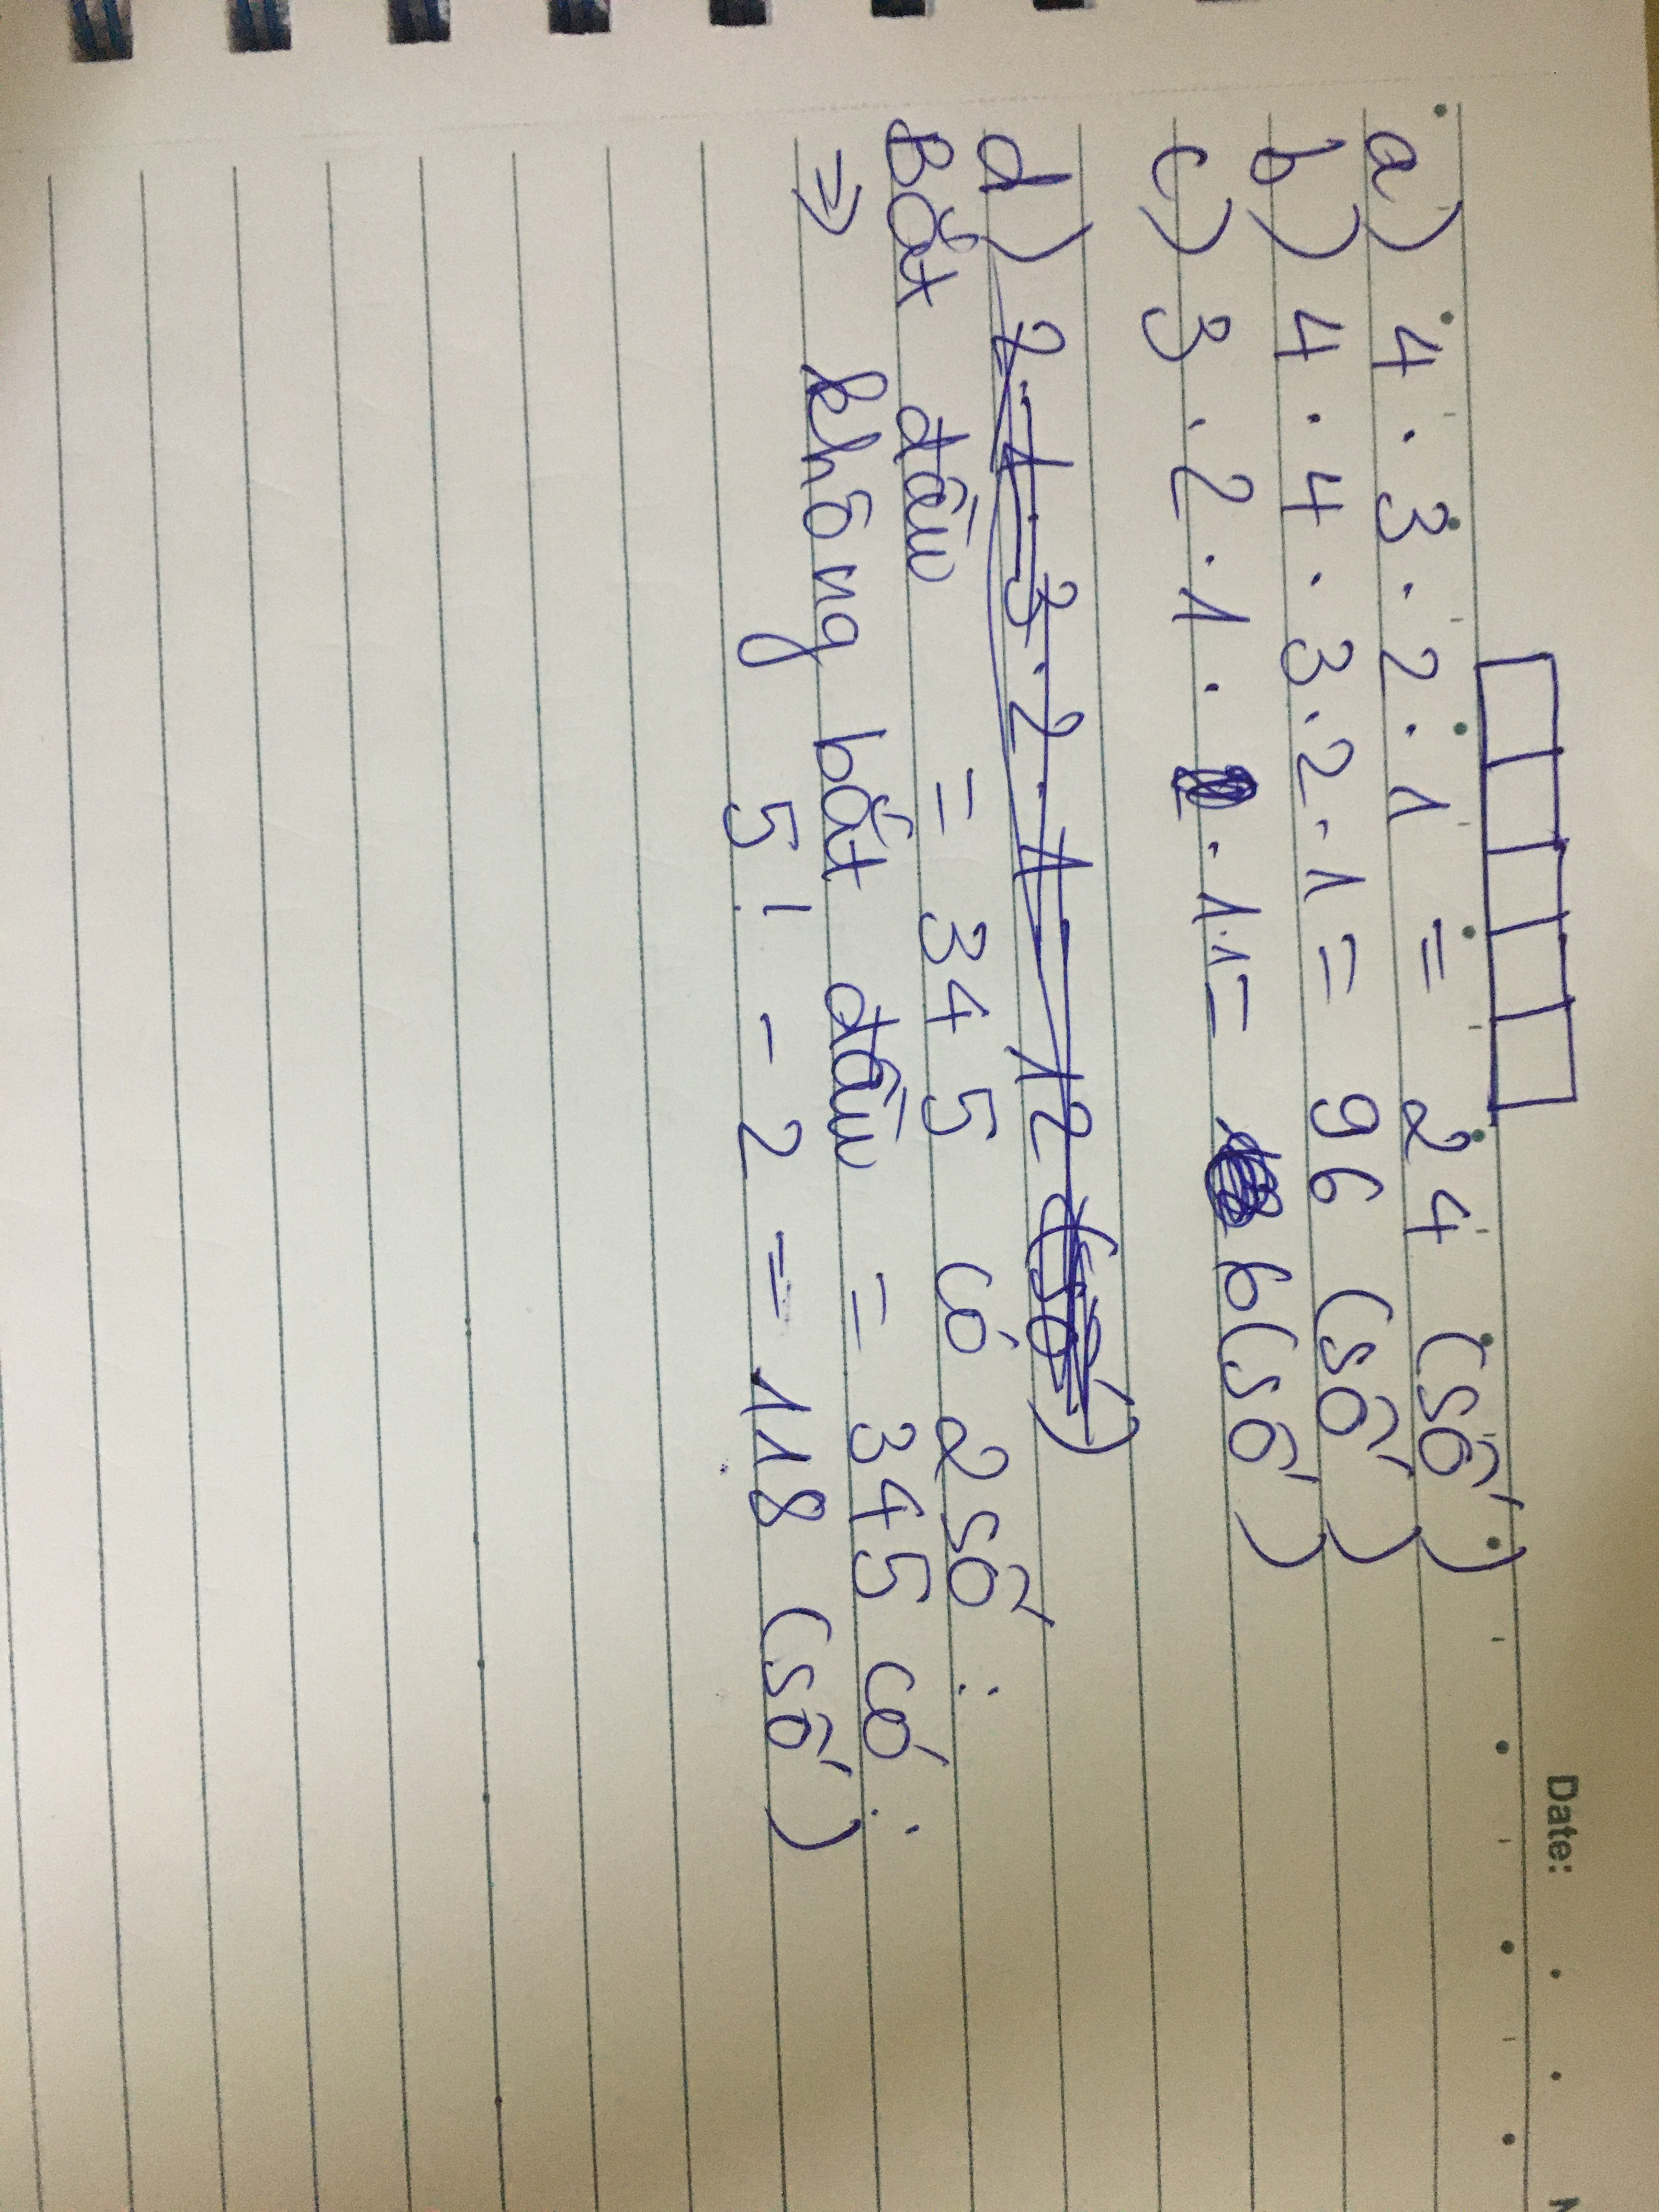 Date:
a) 4 . 3 . 2 . 1 = 24 (số)
b) 4 . 4 . 3 . 2 . 1 = 96 (số)
c) 3 . 2 . 1 . . 1.1 = 6 (số)
d) 2 . 1 . 3 . 2 . 1 = 12 (số)
Bắt đầu = 345 có 2 số :
=> không bắt đầu = 345 có :
5! - 2 = 118 (số)